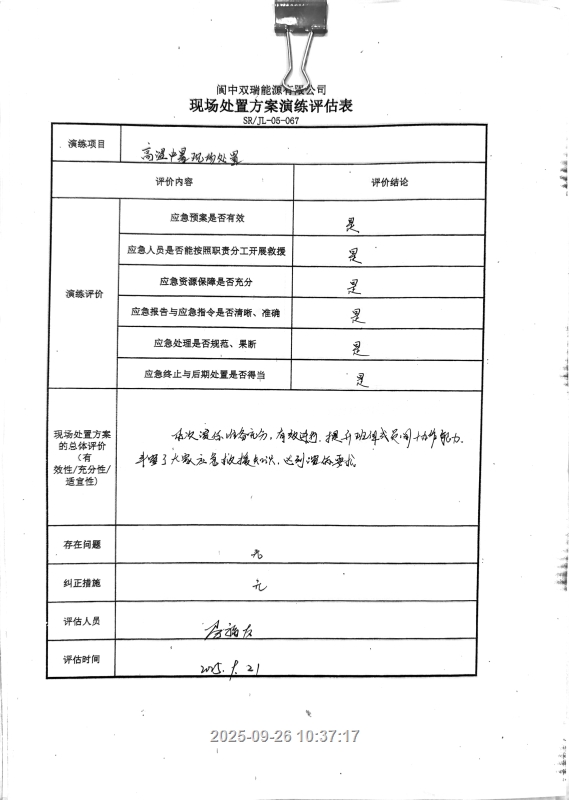 阆中双瑞能源有限公司
现场处置方案演练评估表
SR/JL-05-067
演练项目 高温中暑现场处置
评价内容 评价结论
演练评价
应急预案是否有效 是
应急人员是否能按照职责分工开展救援 是
应急资源保障是否充分 是
应急报告与应急指令是否清晰、准确 是
应急处理是否规范、果断 是
应急终止与后期处置是否得当 是
现场处置方案
的总体评价
（有
效性/充分性/
适宜性)
本次演练准备充分，有效进行，提升班组成员间协作能力，
丰富了大家应急救援知识，达到演练要求。
存在问题 无
纠正措施 无
评估人员
评估时间 2025.9.21
2025-09-26 10:37:17